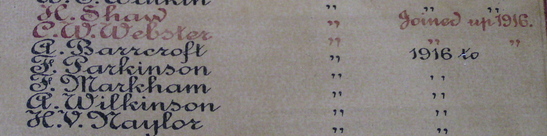 H. Shaw " Joined up 1916.
C.W. Webster " " "
A. Barrcroft " 1916 to
F. Parkinson " "
F. Markham " "
A. Wilkinson " "
H.V. Naylor " "